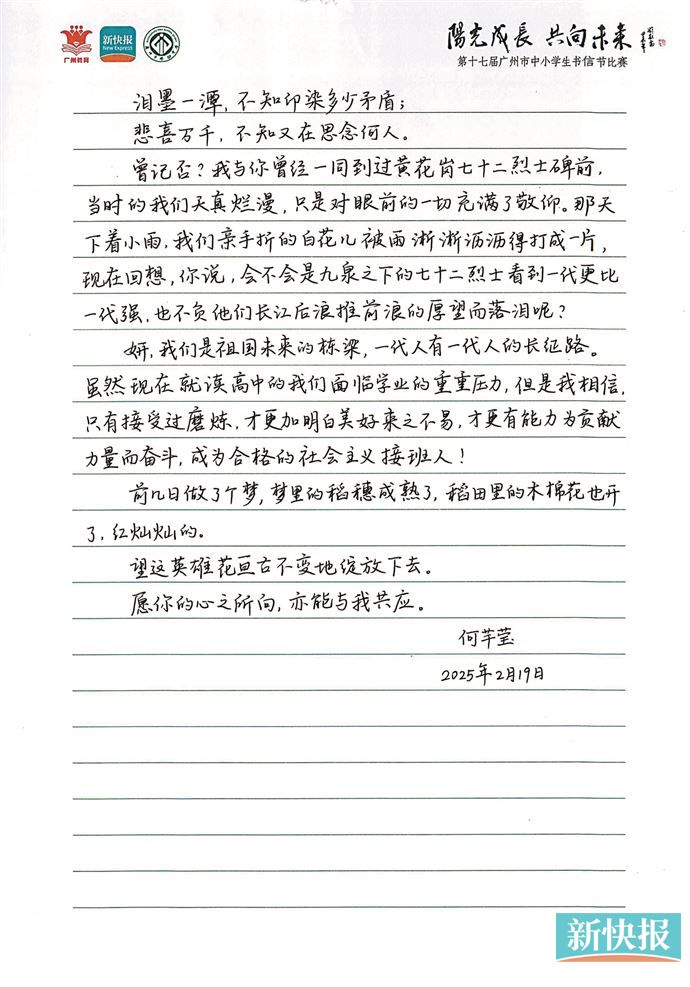 广州教育
新快报
New Express
陽光成長 共向未来
第十七届广州市中小学生书信节比赛
泪墨一潭，不知印染多少矛盾；
悲喜万千，不知又在思念何人。
曾记否？我与你曾经一同到过黄花岗七十二烈士碑前，
当时的我们天真烂漫，只是对眼前的一切充满了敬仰。那天
下着小雨，我们亲手折的白花儿被雨淅淅沥沥得打成一片，
现在回想，你说，会不会是九泉之下的七十二烈士看到一代更比
一代强，也不负他们长江后浪推前浪的厚望而落泪呢？
妍，我们是祖国未来的栋梁，一代人有一代人的长征路。
虽然现在就读高中的我们面临学业的重重压力，但是我相信，
只有接受过磨炼，才更加明白美好来之不易，才更有能力为贡献
力量而奋斗，成为合格的社会主义接班人！
前几日做了个梦，梦里的稻穗成熟了，稻田里的木棉花也开
了，红灿灿的。
望这英雄花亘古不变地绽放下去。
愿你的心之所向，亦能与我共应。
何芊莹
2025年2月19日
新快报